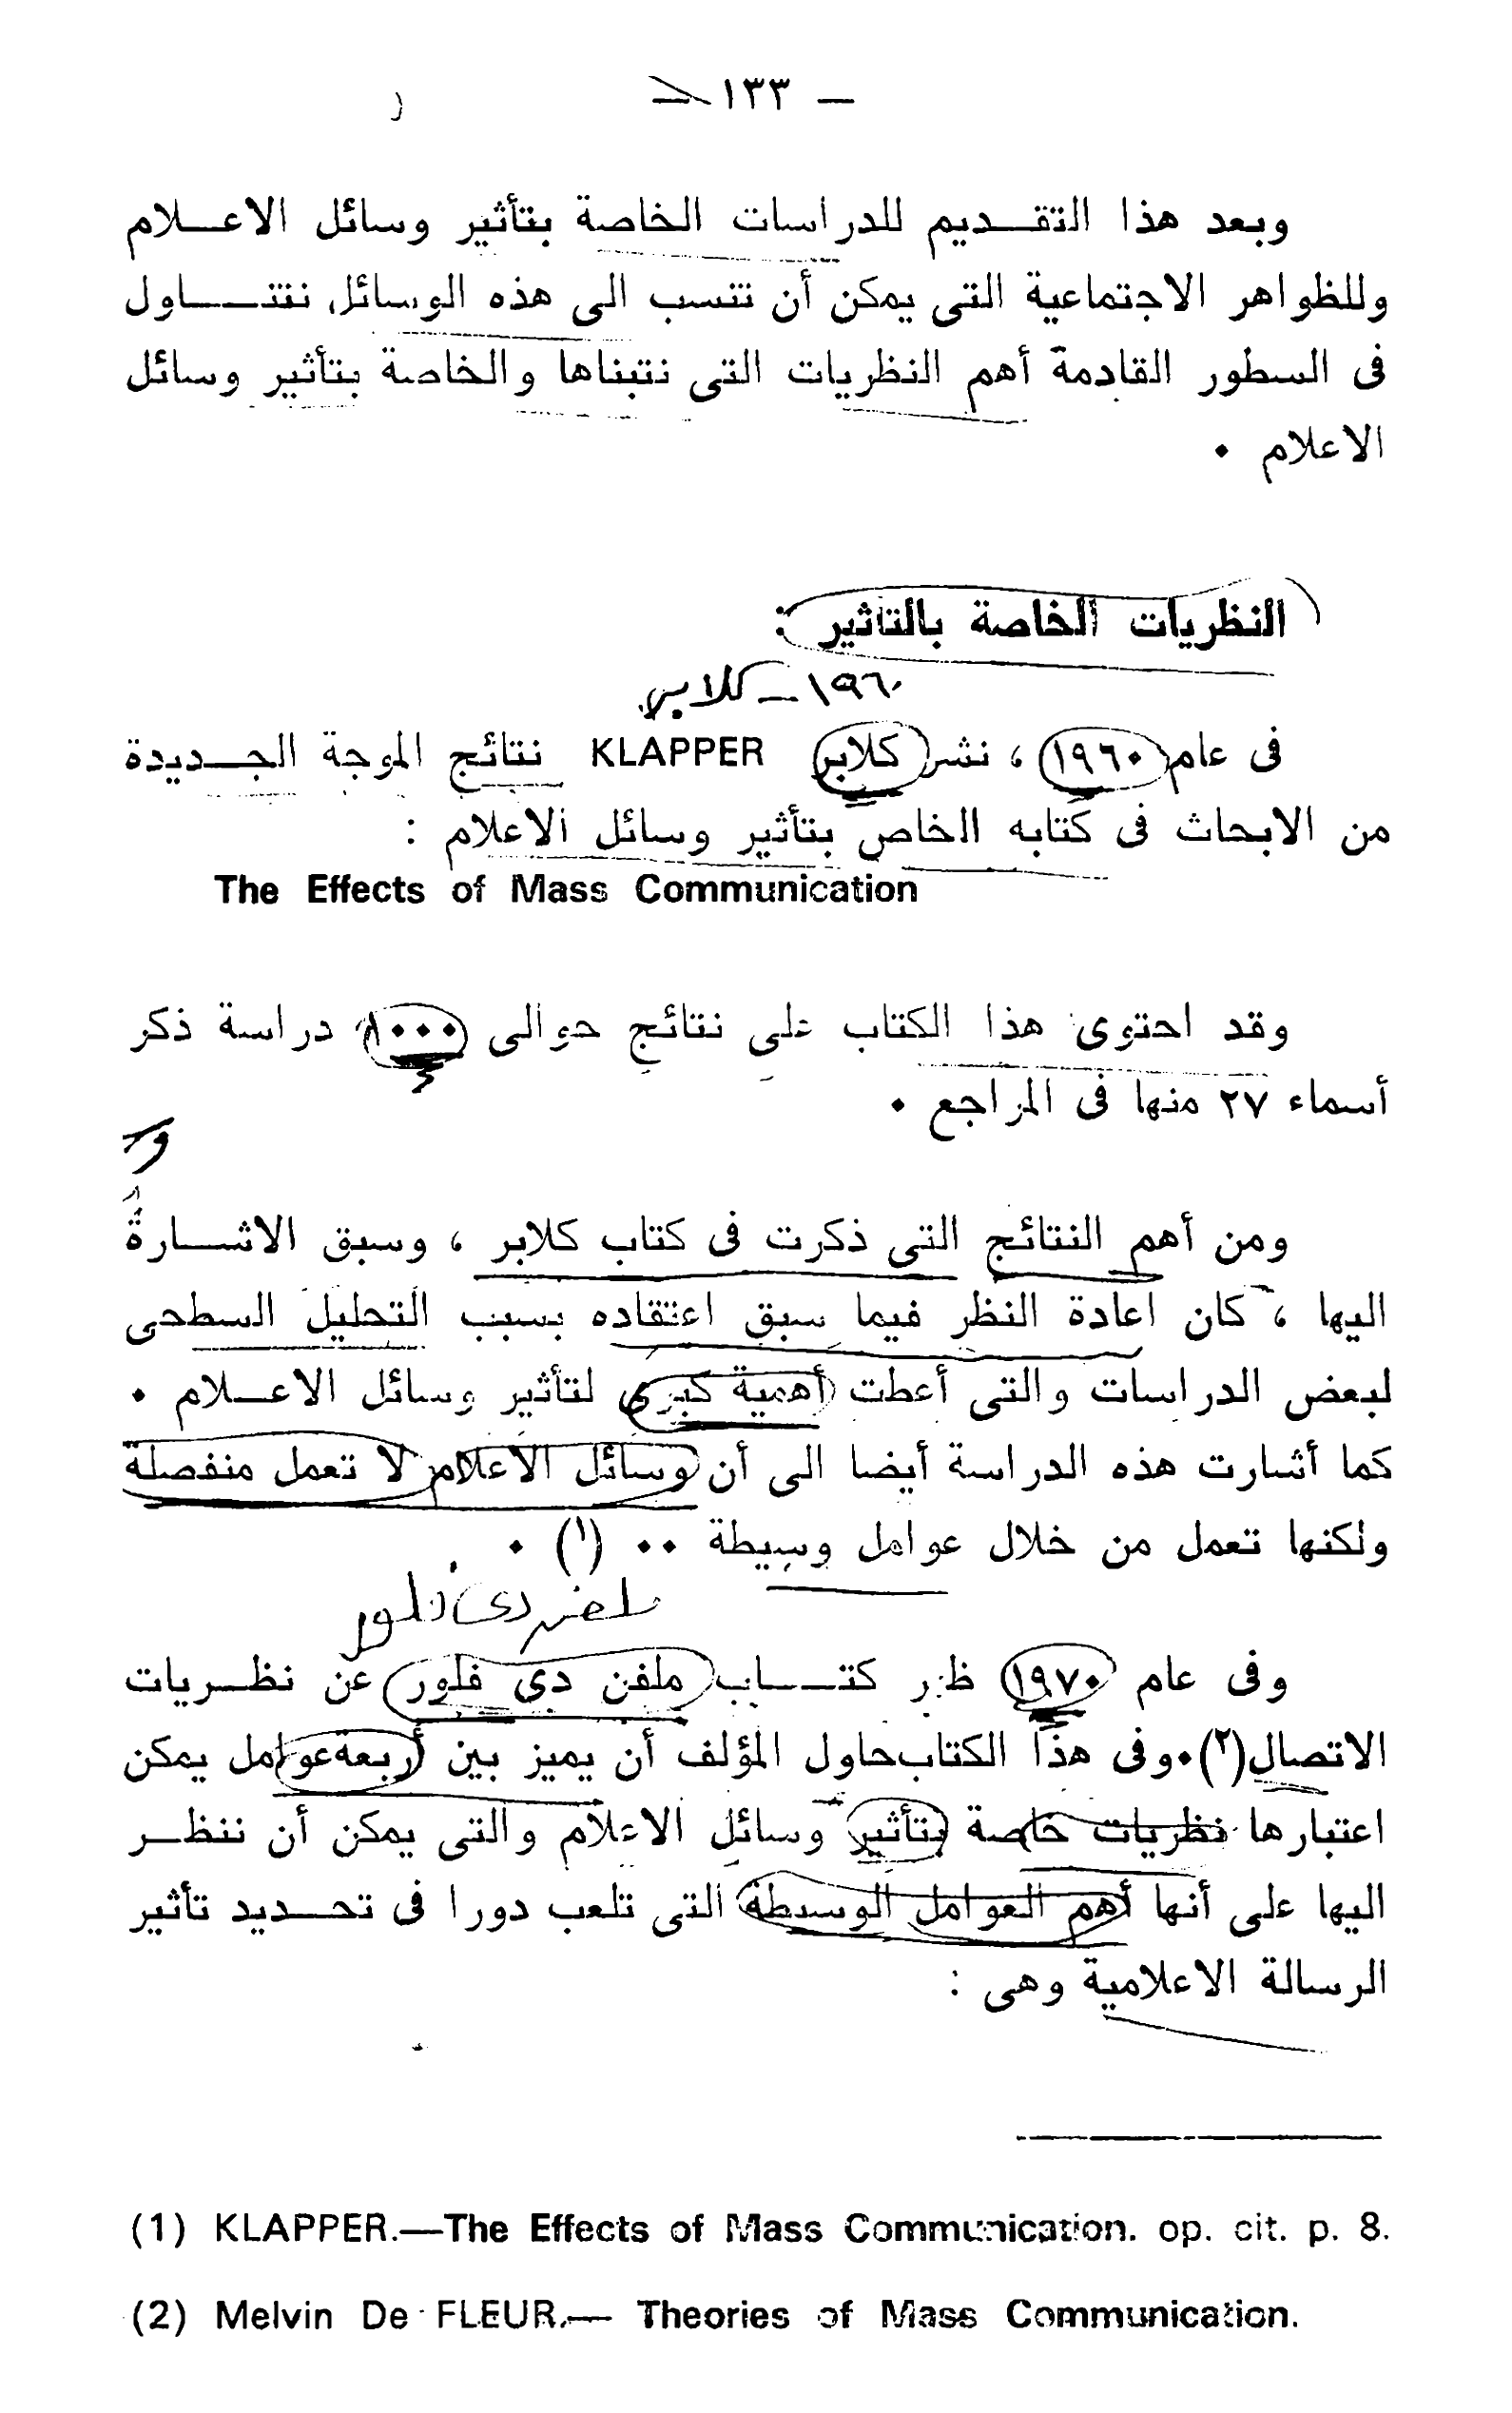 — ١٣٣ —
وبعد هذا التقـديم للدراسات الخاصة بتأثير وسائل الاعـلام
وللظواهر الاجتماعية التى يمكن أن تنسب الى هذه الوسائل، نتنـاول
فى السطور القادمة أهم النظريات التى نتبناها والخاصة بتأثير وسائل
الاعلام ٠
النظريات الخاصة بالتاثير :
١٩٦٠ – كلابر
فى عام ١٩٦٠ ، نشر كلابر KLAPPER نتائج الموجة الجـديدة
من الابحاث فى كتابه الخاص بتأثير وسائل الاعلام :
The Effects of Mass Communication
وقد احتوى هذا الكتاب على نتائج حوالى ١٠٠٠ دراسة ذكر
أسماء ٢٧ منها فى المراجع ٠
ومن أهم النتائج التى ذكرت فى كتاب كلابر ، وسبق الاشـارة
اليها ، كان اعادة النظر فيما سبق اعتقاده بسبب التحليل السطحى
لبعض الدراسات والتى أعطت أهمية كبرى لتأثير وسائل الاعـلام ٠
كما أشارت هذه الدراسة أيضا الى أن وسائل الاعلام لا تعمل منفصلة
ولكنها تعمل من خلال عوامل وسيطة ٠٠ (١) ٠
ملفن دى فلور
وفى عام ١٩٧٠ ظهر كتـاب ملفن دى فلور عن نظـريات
الاتصال(٢)٠وفى هذا الكتاب حاول المؤلف أن يميز بين أربعة عوامل يمكن
اعتبارها نظريات خاصة بتأثير وسائل الاعلام والتى يمكن أن ننظـر
اليها على أنها أهم العوامل الوسطة التى تلعب دورا فى تحـديد تأثير
الرسالة الاعلامية وهى :
(1) KLAPPER.—The Effects of Mass Communication. op. cit. p. 8.
(2) Melvin De FLEUR.— Theories of Mass Communication.